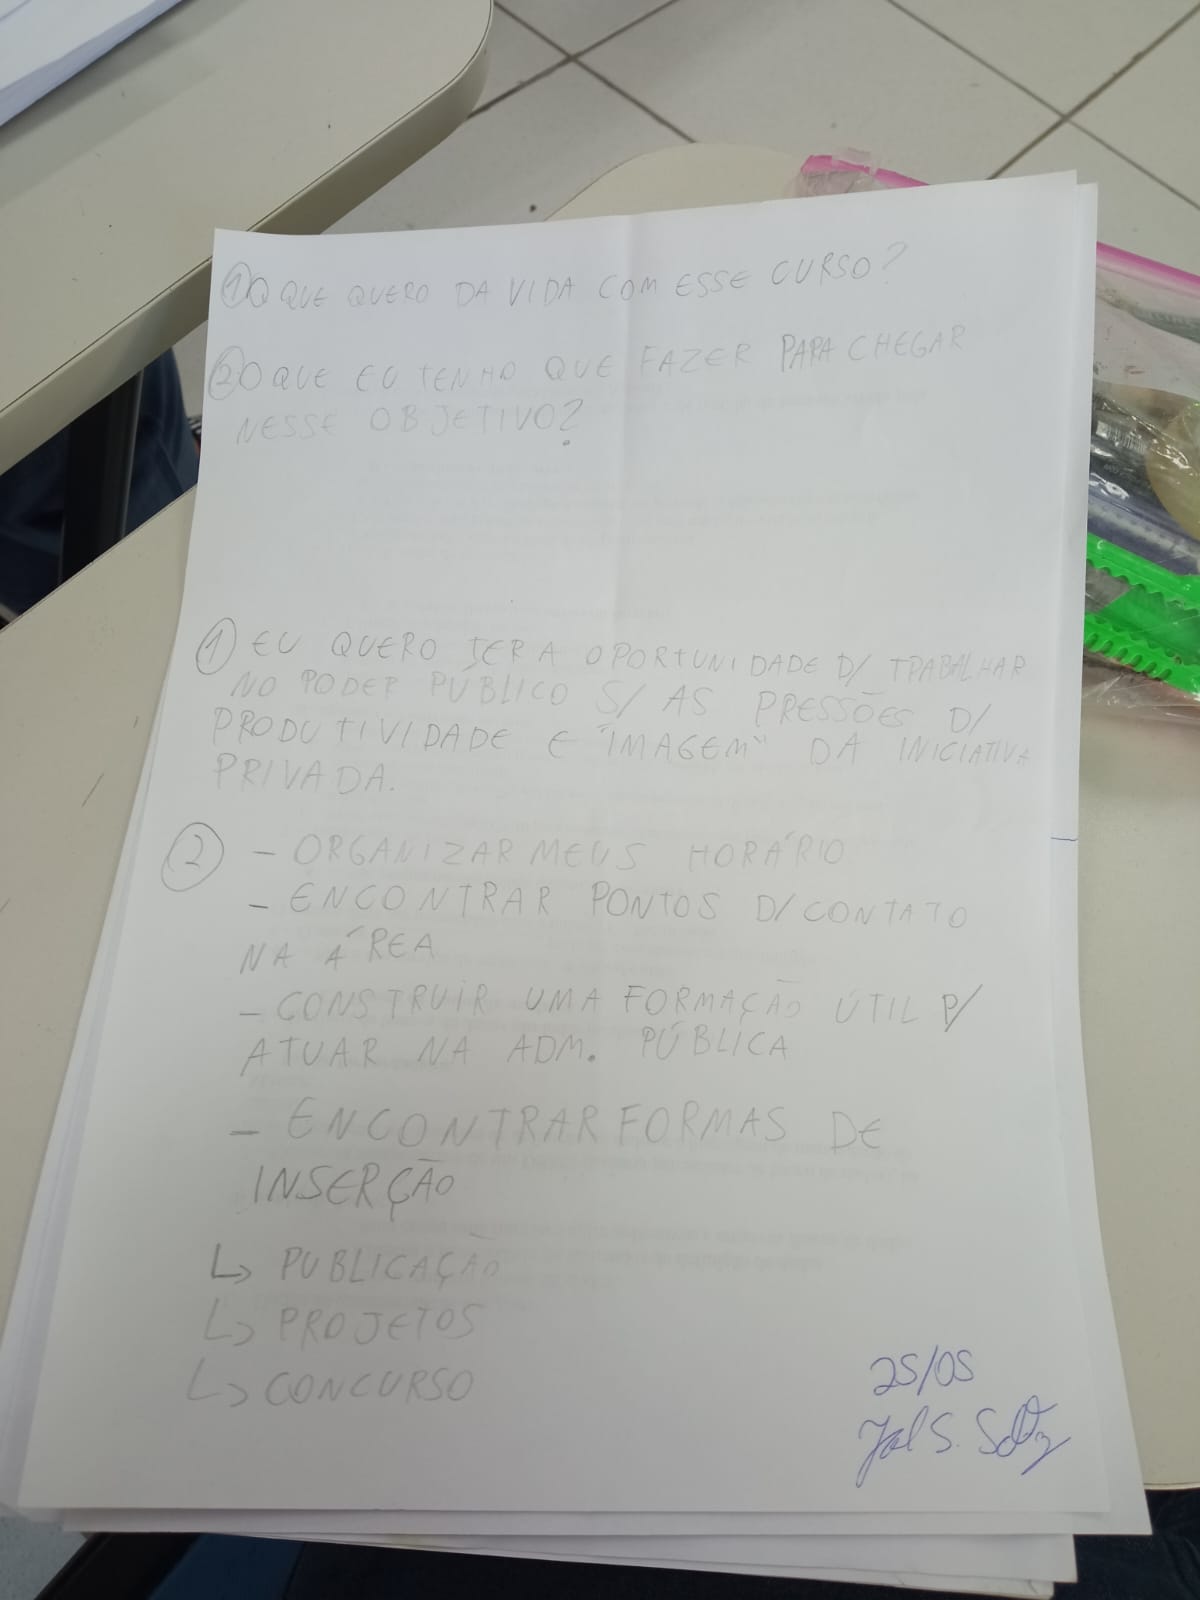 ① O QUE QUERO DA VIDA COM ESSE CURSO?
② O QUE EU TENHO QUE FAZER PARA CHEGAR
NESSE OBJETIVO?
① EU QUERO TER A OPORTUNIDADE D/ TRABALHAR
NO PODER PUBLICO S/ AS PRESSÕES D/
PRODUTIVIDADE E "IMAGEM" DA INICIATIVA
PRIVADA.
② - ORGANIZAR MEUS HORÁRIO
- ENCONTRAR PONTOS D/ CONTATO
NA ÁREA
- CONSTRUIR UMA FORMAÇÃO ÚTIL P/
ATUAR NA ADM. PÚBLICA
- ENCONTRAR FORMAS DE
INSERÇÃO
↳ PUBLICAÇÃO
↳ PROJETOS
↳ CONCURSO
25/05